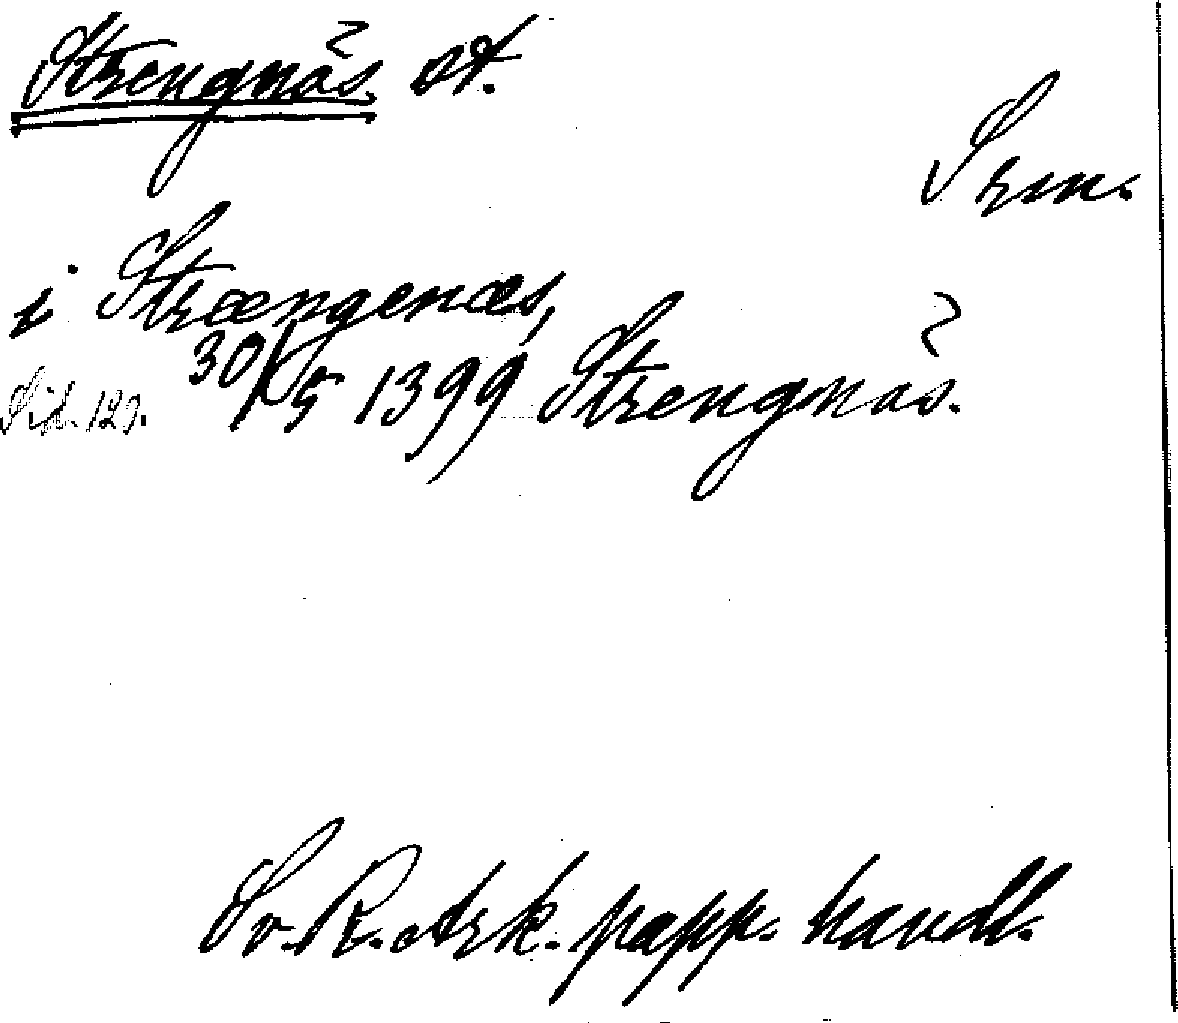 Strengnäs. st.
Srm.
i Strængenæs,
Sid. 129. 30/5 1399 Strengnäs.
Sv. R. Ark. papp. handl.